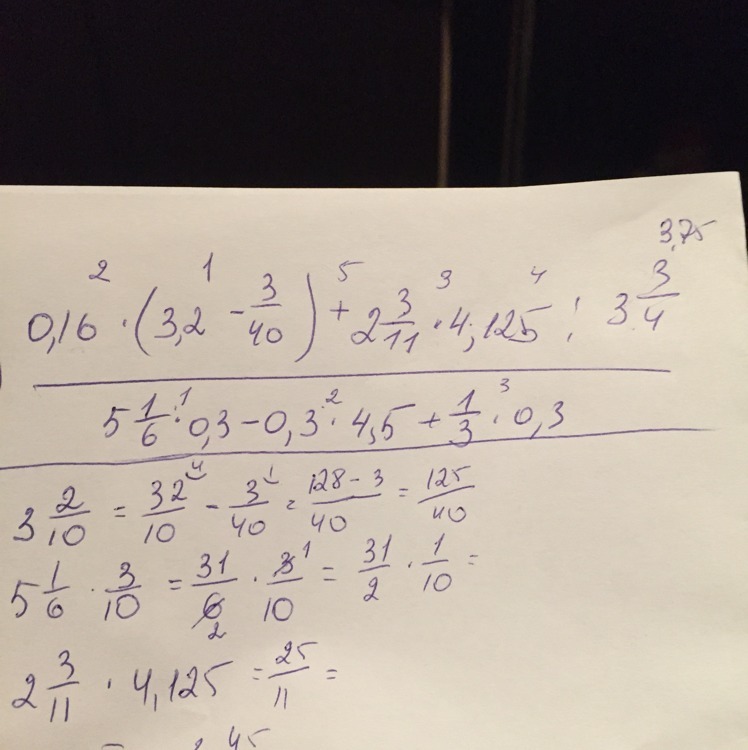 3,75
2 1 5 3 4
0,16 · (3,2 - 3/40) + 2 3/11 · 4,125 : 3 3/4
1 2 3
5 1/6 · 0,3 - 0,3 · 4,5 + 1/3 · 0,3
3 2/10 = 32/10 - 3/40 = 128-3/40 = 125/40
5 1/6 · 3/10 = 31/6 · 3/10 = 31/2 · 1/10 =
2 3/11 · 4,125 = 25/11 =
45